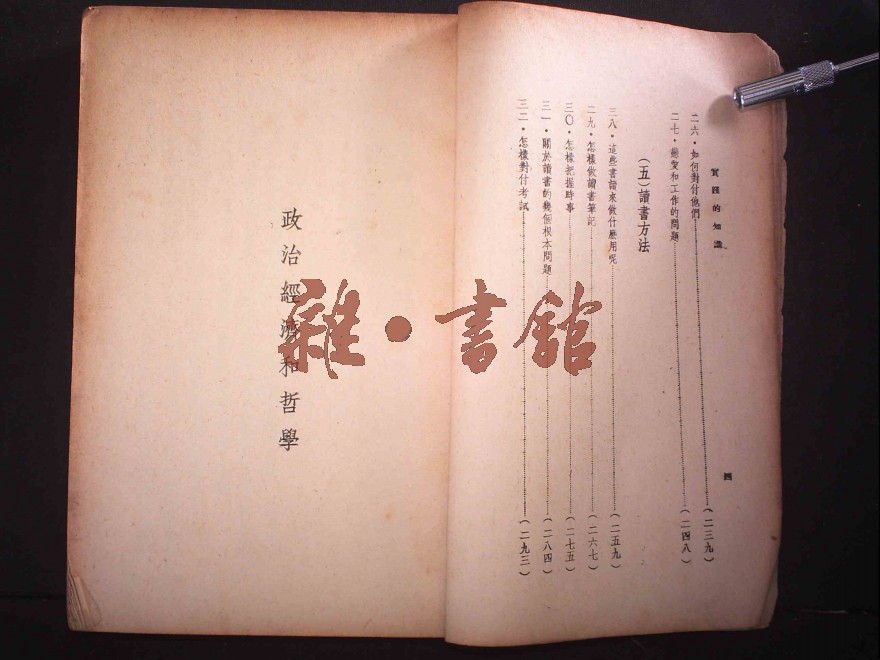 實踐的知識
四
二六・如何對付他們……(二三九)
二七・戀愛和工作的問題……(二四八)
(五)讀書方法
三八・這些書讀來做什麽用呢……(二五九)
二九・怎樣做讀書筆記……(二六七)
三〇・怎樣把握時事……(二七五)
三一・關於讀書的幾個根本問題……(二八四)
三二・怎樣對付考試……(二九三)
政治經濟和哲學
雜・書館